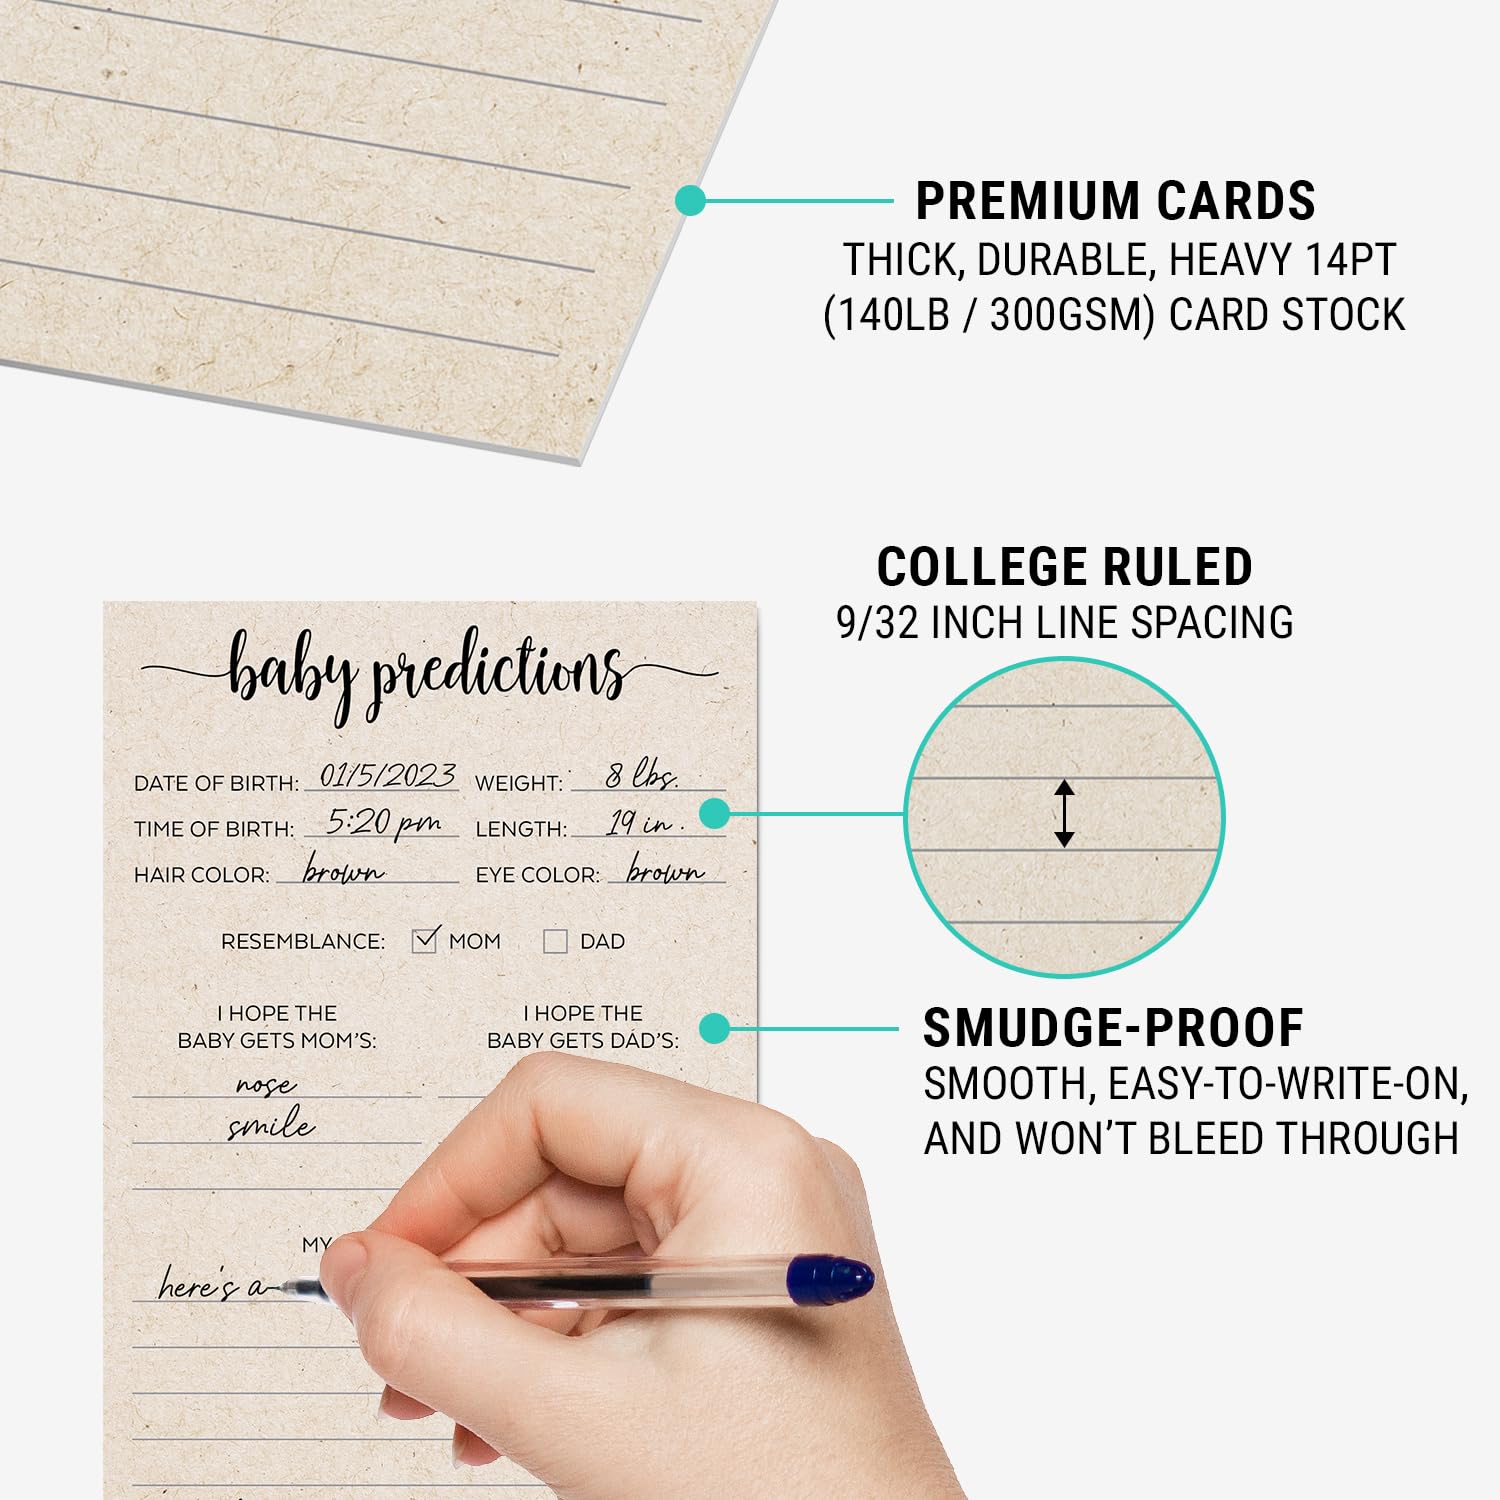 PREMIUM CARDS
THICK, DURABLE, HEAVY 14PT
(140LB / 300GSM) CARD STOCK
COLLEGE RULED
9/32 INCH LINE SPACING
baby predictions
DATE OF BIRTH: 01/5/2023 WEIGHT: 8 lbs.
TIME OF BIRTH: 5:20 pm LENGTH: 19 in.
HAIR COLOR: brown EYE COLOR: brown
RESEMBLANCE: MOM DAD
I HOPE THE
BABY GETS MOM'S:
nose
smile
I HOPE THE
BABY GETS DAD'S:
SMUDGE-PROOF
SMOOTH, EASY-TO-WRITE-ON,
AND WON'T BLEED THROUGH
MY
here's a